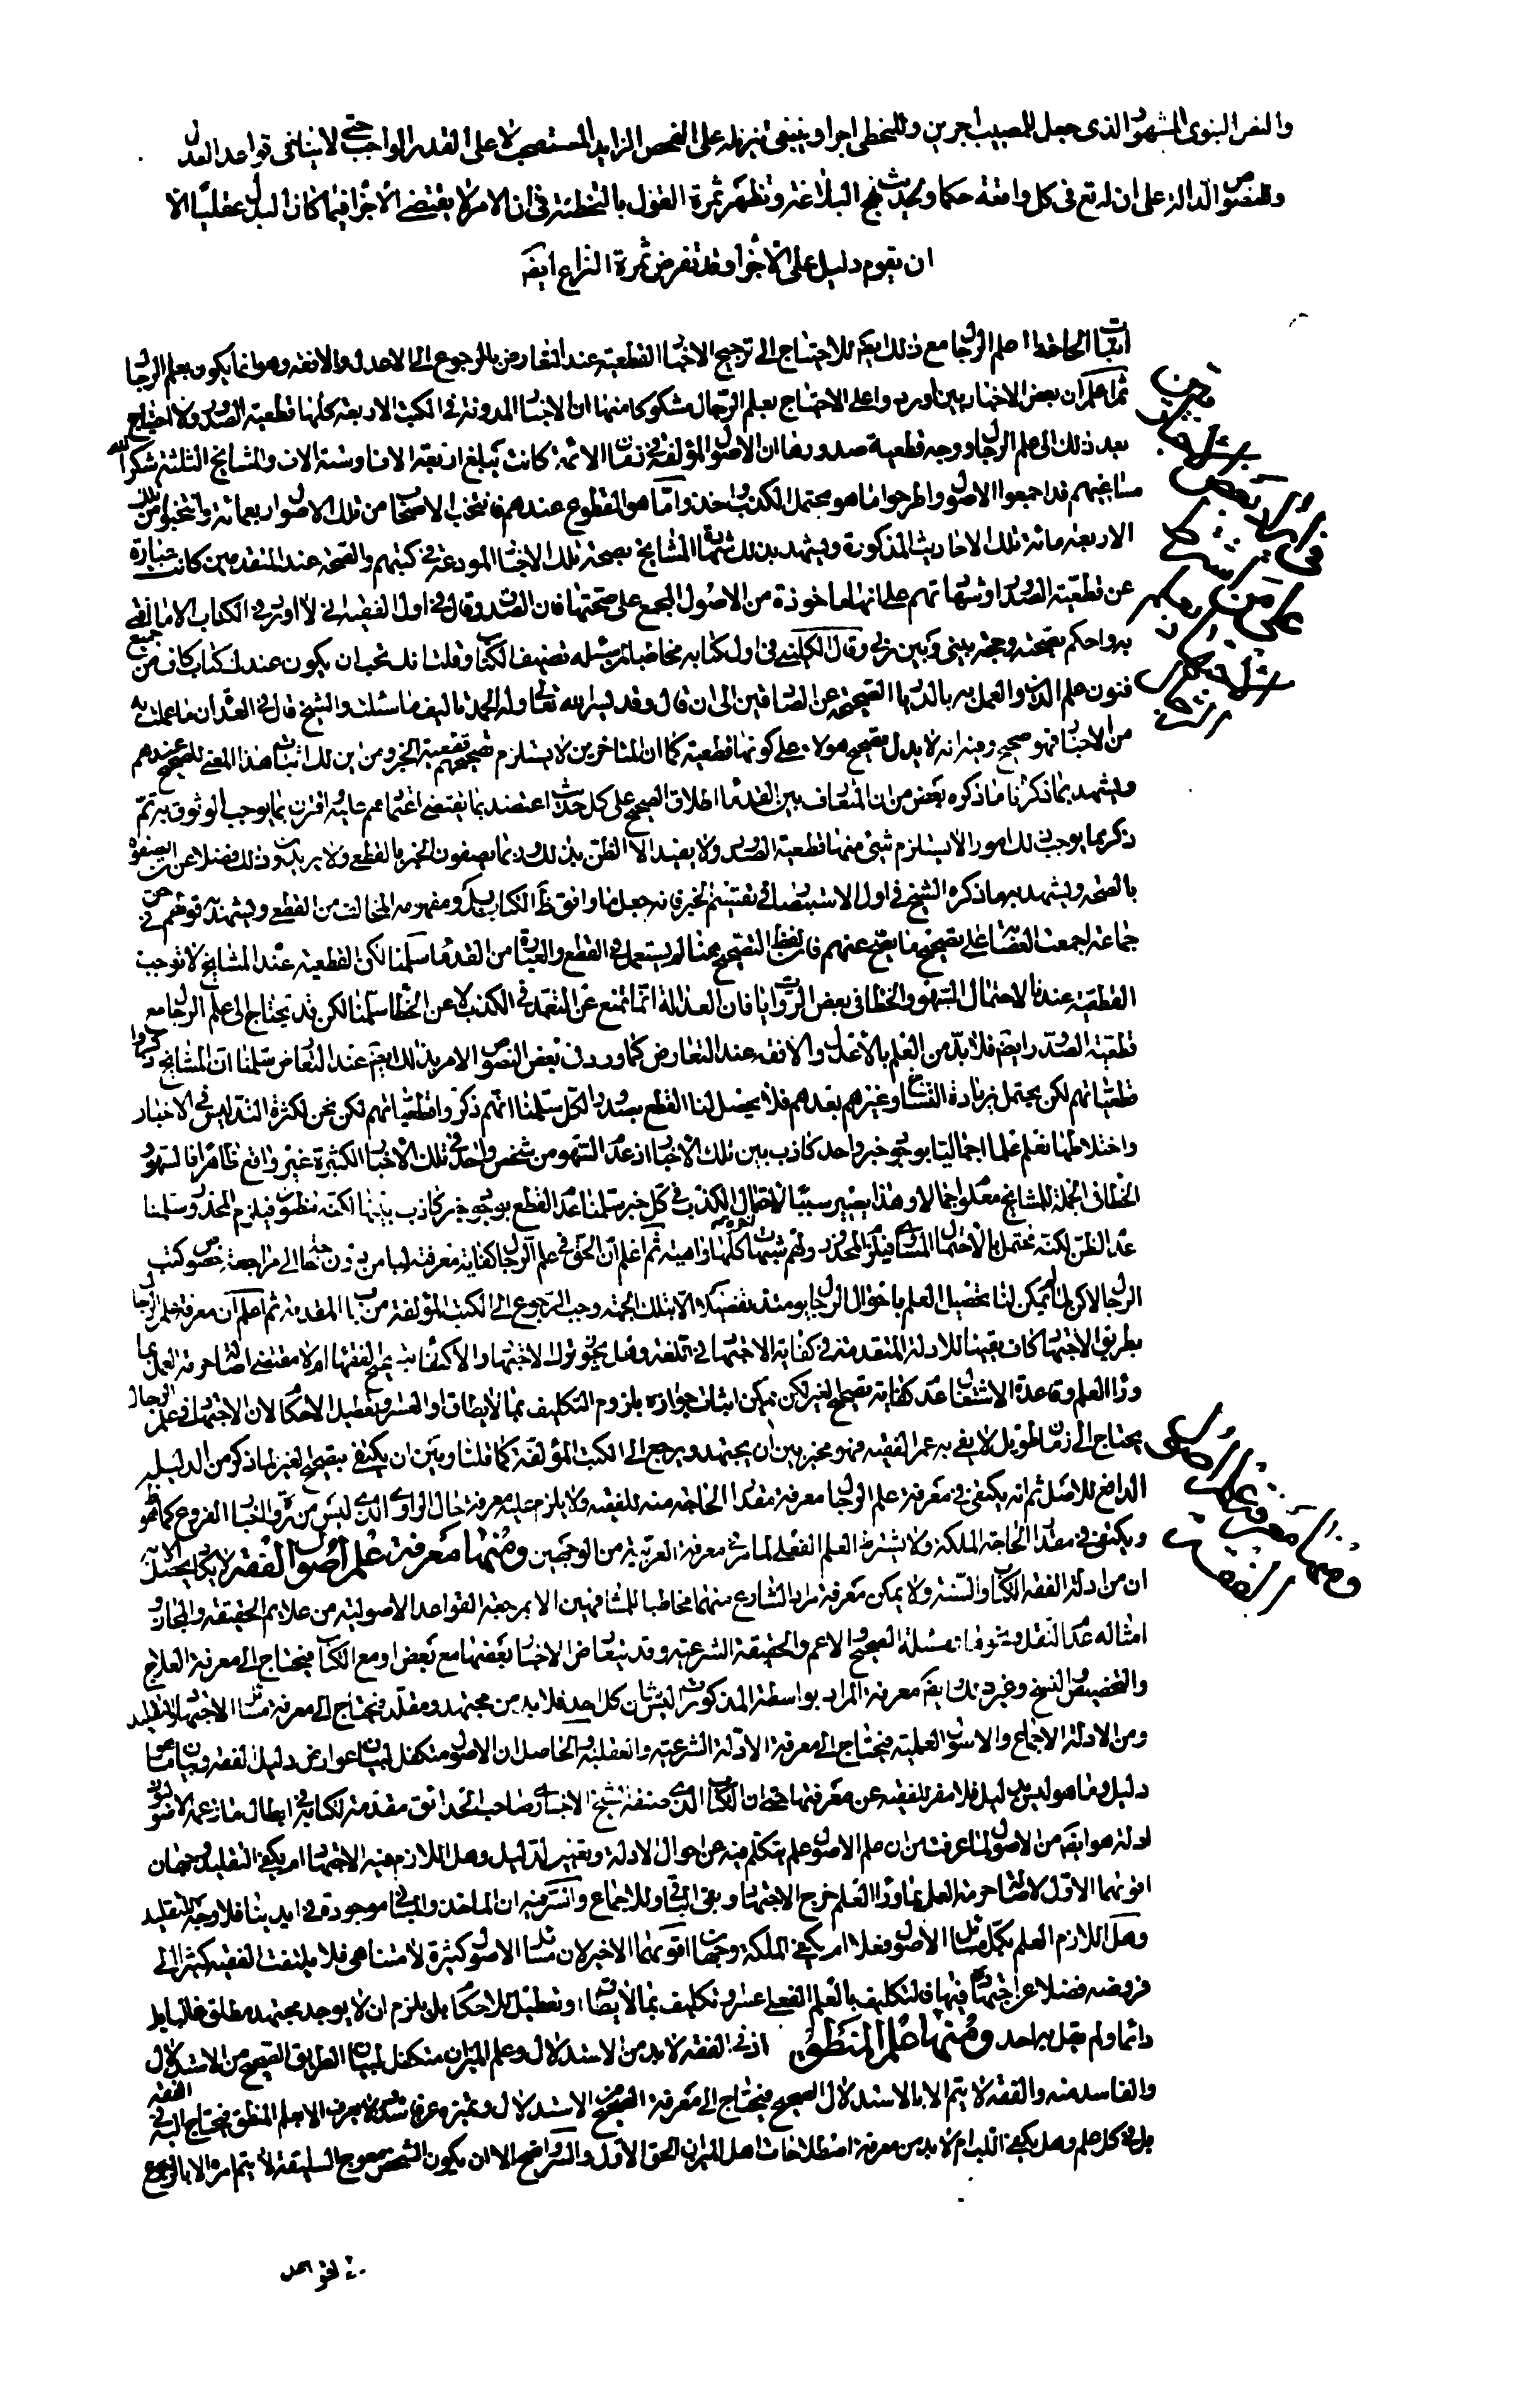 والنص النبوى المشهور الذى جعل للمصيب اجرين وللمخطى اجرا وينبغى تنزيله على الفحص الزايد المستحب لا على القدر الواجب حتى لا ينافى قواعد العدل
وللنصوص الدالة على ان لله تع فى كل واقعة حكما ولحديث نهج البلاغة وتظهر ثمرة القول بالتخطئة فى ان الامر لا يقتضى الاجزا فيما كان الدليل عقليا الا
ان يقوم دليل على الاجزا وقد تفرض ثمرة النزاع ايضا
اثبات الحاجة الى علم الرجال مع ذلك ايضا للاحتياج الى ترجيح الاخبار القطعية عند التعارض بالرجوع الى الاعدل والافقه وهو انما يكون بعلم الرجال
ثم اعلم ان بعض الاخباريين اوردوا على الاحتياج بعلم الرجال شكوكا منها ان الاخبار المدونة فى الكتب الاربعة كلها قطعية الصدور ولا احتياج
بعد ذلك الى علم الرجال ووجه قطعية صدورها ان الاصول المؤلفة فى زمان الائمة كانت تبلغ اربعة الاف او ستة الاف والمشايخ الثلثة شكر الله
مساعيهم قد اجمعوا الاصول واطرحوا ما هو محتمل الكذب واخذوا ما هو المقطوع عندهم فانتخب الاصحاب من تلك الاصول اربعمائة وانتخبوا من تلك
الاربعة مائة تلك الاحاديث المذكورة ويشهد بذلك شهادة المشايخ بصحة تلك الاخبار المودعة فى كتبهم والصحة عند المتقدمين كانت عبارة
عن قطعية الصدور او شهادتهم على انها ماخوذة من الاصول المجمع على صحتها فان الصدوق قال فى اول الفقيه انى لا اورد فى الكتاب الا ما افتى
به واحكم بصحته وحجة بينى وبين ربى وقال الكلينى فى اول كتابه مخاطبا لمن سئله تصنيف الكتاب وقلت انك تحب ان يكون عندك كتاب كاف من جميع
فنون علم الدين والعمل به بالاثار الصحيحة عن الصادقين الى ان قال وقد يسر الله تعالى وله الحمد تاليف ما سئلت والشيخ قال فى العدة ان ما عملت به
من الاخبار فهو صحيح وفيه انه لا يدل تصحيح هولاء على كونها قطعية كما ان المتاخرين لا يستلزم تصحيحهم قطعية الخبر ومن اين لك اثبات هذا المعنى للصحيح عندهم
ويشهد بما ذكرنا ما ذكره بعض من ان المتعارف بين القدماء اطلاق الصحيح على كل حديث اعتضد بما يقتضى اعتمادهم عليه او اقترن بما يوجب الوثوق به ثم
ذكر ما يوجب ذلك امورا لا يستلزم شئ منها قطعية الصدور ولا يفيد الا الظن بذلك وربما يصفون الخبر بالقطع ولا يريدون ذلك فضلا عن ان يصفوه
بالصحة ويشهد به ما ذكره الشيخ فى اول الاستبصار فى تقسيم الخبر فانه جعل ما وافق ظاهر الكتاب بل ومفهومه المخالف من القطع ويشهد به قولهم فى حق
جماعة اجمعت العصابة على تصحيح ما يصح عنهم فان لفظ التصحيح هنا لم يستعمل فى القطع والعبارة من القدماء سلمنا لكن القطعية عند المشايخ لا توجب
القطعية عندنا لاحتمال السهو والخطا فى بعض الروايات فان العدالة انما تمنع عن التعمد فى الكذب لا عن الخطا سلمنا لكن قد يحتاج الى علم الرجال مع
قطعية الصدور ايضا فلا بد من العلم بالاعدل والافقه عند التعارض كما ورد فى بعض النصوص الامر بذلك ايضا عند التعارض سلمنا ان المشايخ ذكروا
قطعياتهم لكن يحتمل زيادة النساخ وغيرهم بعدهم فلا يحصل لنا القطع بصدور الكل سلمنا انهم ذكروا قطعياتهم لكن نحن لكثرة التدليس فى الاخبار
واختلاطها نعلم علما اجماليا بوجود خبر واحد كاذب بين تلك الاخبار اذ عدم السهو من شخص واحد فى تلك الاخبار الكثيرة غير واقع ظاهرا فالسهو
الخطا فى الجملة للمشايخ معلوم اجمالا وهذا يصير سببا لاحتمال الكذب فى كل خبر سلمنا عدم القطع بوجود خبر كاذب بينها لكنه مظنون فيلزم المحذور سلمنا
عدم الظن لكنه محتمل بالاحتمال المساوى فيلزم المحذور ولهم شبهات كلها واهية ثم اعلم ان الحق فى علم الرجال كفاية معرفة لبا من دون حاجة الى مراجعة خصوص كتب
الرجال لكن لما لم يمكن لنا تحصيل العلم باحوال الرجال يومئذ تفصيلا الا بتلك الجهة وجب الرجوع الى الكتب المؤلفة من باب المقدمة ثم اعلم ان معرفة علم الرجال
بطريق الاجتهاد كاف يقينا للادلة المتقدمة فى كفاية الاجتهاد فى اللغة وهل يجوز ترك الاجتهاد والاكتفاء بتصحيح الفقهاء ام لا مقتضى اصالة حرمة العمل بما
وراء العلم وقاعدة الاشتغال عدم كفاية تصحيح الغير لكن يمكن اثبات جوازه بلزوم التكليف بما لا يطاق او العسر وتعطيل الاحكام لان الاجتهاد فى علم الرجال
يحتاج الى زمان طويل لا يفى به عمر الفقيه فهو مخير بين ان يجتهد ويرجع الى الكتب المؤلفة كما قلنا وبين ان يكتفى بتصحيح الغير لما ذكر من الدليل
الدافع للاصل ثم انه يكتفى فى معرفة علم الرجال معرفة مقدار الحاجة منه للفقيه ولا يلزم عليه معرفة حال الراوى الذى ليس من رواة اخبار الفروع كما هو ظ
ويكتفى فى مقدار الحاجة الملكة ولا يشترط العلم الفعلى لما مر فى معرفة العربية من الوجهين ومنها معرفة علم اصول الفقه
ان من ادلة الفقه الكتاب والسنة ولا يمكن معرفة مراد الشارع منهما مخاطبا للمشافهين الا بمعرفة القواعد الاصولية من علايم الحقيقة والمجاز و
امثاله عدم النقل ونحوها كمسئلة الصحيح والاعم والحقيقة الشرعية وقد يتعارض الاخبار بعضها مع بعض او مع الكتاب فيحتاج الى معرفة العلاج
والتخصيص والنسخ وغير ذلك ايضا معرفة المراد بواسطة المذكورات ليس شان كل احد فلا بد من مجتهد ومقلد فيحتاج الى معرفة مسائل الاجتهاد والتقليد
ومن الادلة الاجماع والاصول العملية فيحتاج الى معرفة الادلة الشرعية والعقلية والحاصل ان الاصول متكفل لبيان عوارض دليل الفقه وبيان ما هو
دليل وما هو ليس بدليل فلا مفر للفقيه عن معرفتها حتى ان الكتاب الذى صنفه شيخ الاخبارى صاحب الحدائق مقدمة لكتابه فى ابطال ما زعمه الاصوليون
ادلة هو ايضا من الاصول لما عرفت من ان علم الاصول علم يتكلم فيه عن احوال الادلة وتعيين الدليل وهل اللازم فيه الاجتهاد ام يكفى التقليد وجهان
اقويهما الاول لاصالة حرمة العمل بما وراء العلم خرج الاجتهاد وبقى الباقى وللاجماع والسر فيه ان الماخذ والمبانى موجودة فى ايدينا فلا وجه للتقليد
وهل اللازم العلم بكل مسائل الاصول فعلا ام يكفى الملكة وجهان اقويهما الاخير لان مسائل الاصول كثيرة لا متناهى فلا يلتفت الفقيه كثيرا الى
فروضه فضلا عن اجتهاده فيها فالتكليف بالعلم الفعلى عسر وتكليف بما لا يطاق وتعطيل للاحكام بل يلزم ان لا يوجد مجتهد مطلق
دائما ولم يقل به احد ومنها علم المنطق اذ فى الفقه لا بد من الاستدلال وعلم الميزان متكفل لبيان الطريق الصحيح من الاستدلال
والفاسد منه والفقه لا يتم الا بالاستدلال الصحيح فيحتاج الى معرفة الصحيح من الاستدلال وتميزه عن فاسده ولا يعرف الا بعلم المنطق فيحتاج اليه فى الفقه
بل فى كل علم وهل يكفى اللب ام لا بد من معرفة اصطلاحات اهل الميزان الحق الاول والسر واضح الا ان يكون الشخص معوج السليقة لا يتم امره الا بالرجوع
ومنها معرفة علم اصول
الفقه